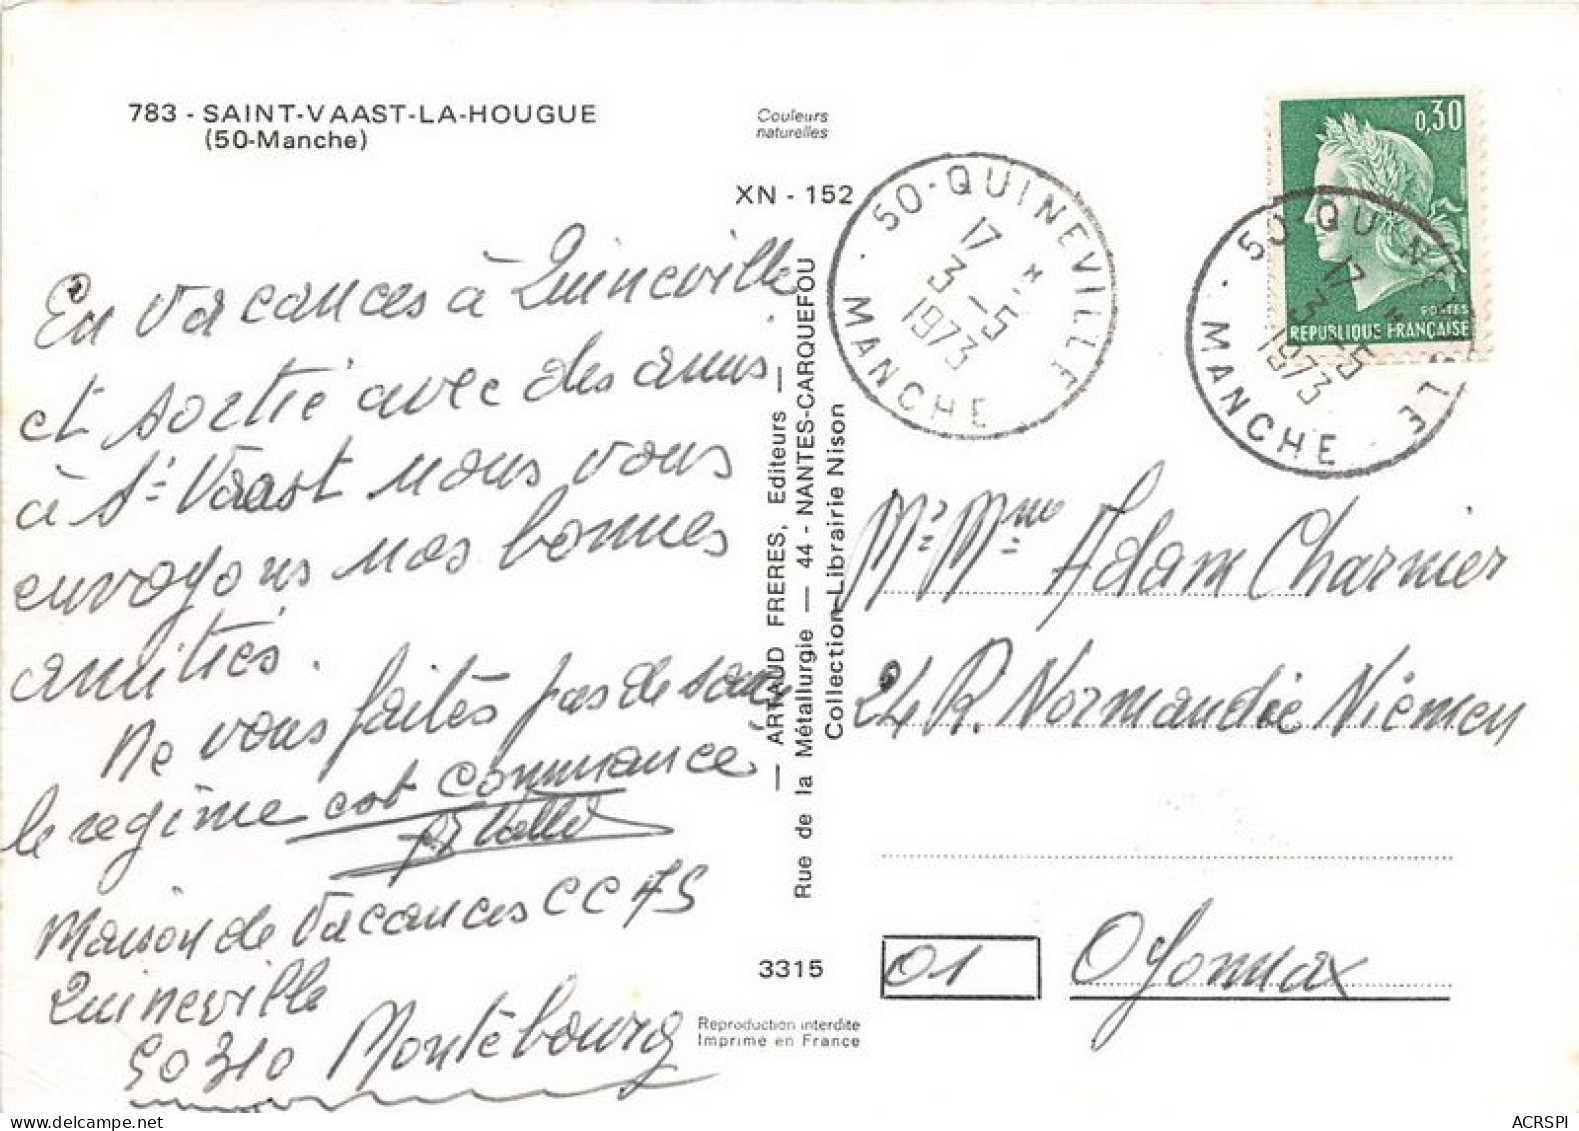 783 - SAINT-VAAST-LA-HOUGUE
(50-Manche)
Couleurs
naturelles
XN - 152
En vacances à Quineville
et sortie avec des amis
à St Vaast nous vous
envoyons nos bonnes
amitiés.
Ne vous faites pas de souci
le régime est commencé
Maison de Vacances CCAS
Quineville
50310 Montebourg
— ARTAUD FRERES, Editeurs —
Rue de la Métallurgie — 44 - NANTES-CARQUEFOU
Collection Librairie Nison
3315
Reproduction interdite
Imprimé en France
50-QUINEVILLE
17 H
3 - 5
1973
MANCHE
0,30
POSTES
REPUBLIQUE FRANÇAISE
50-QUINEVILLE
17 H
3 - 5
1973
MANCHE
Mr Mme Adam Charnier
24 R. Normandie Niémen
01 Oyonnax
ACRSPI